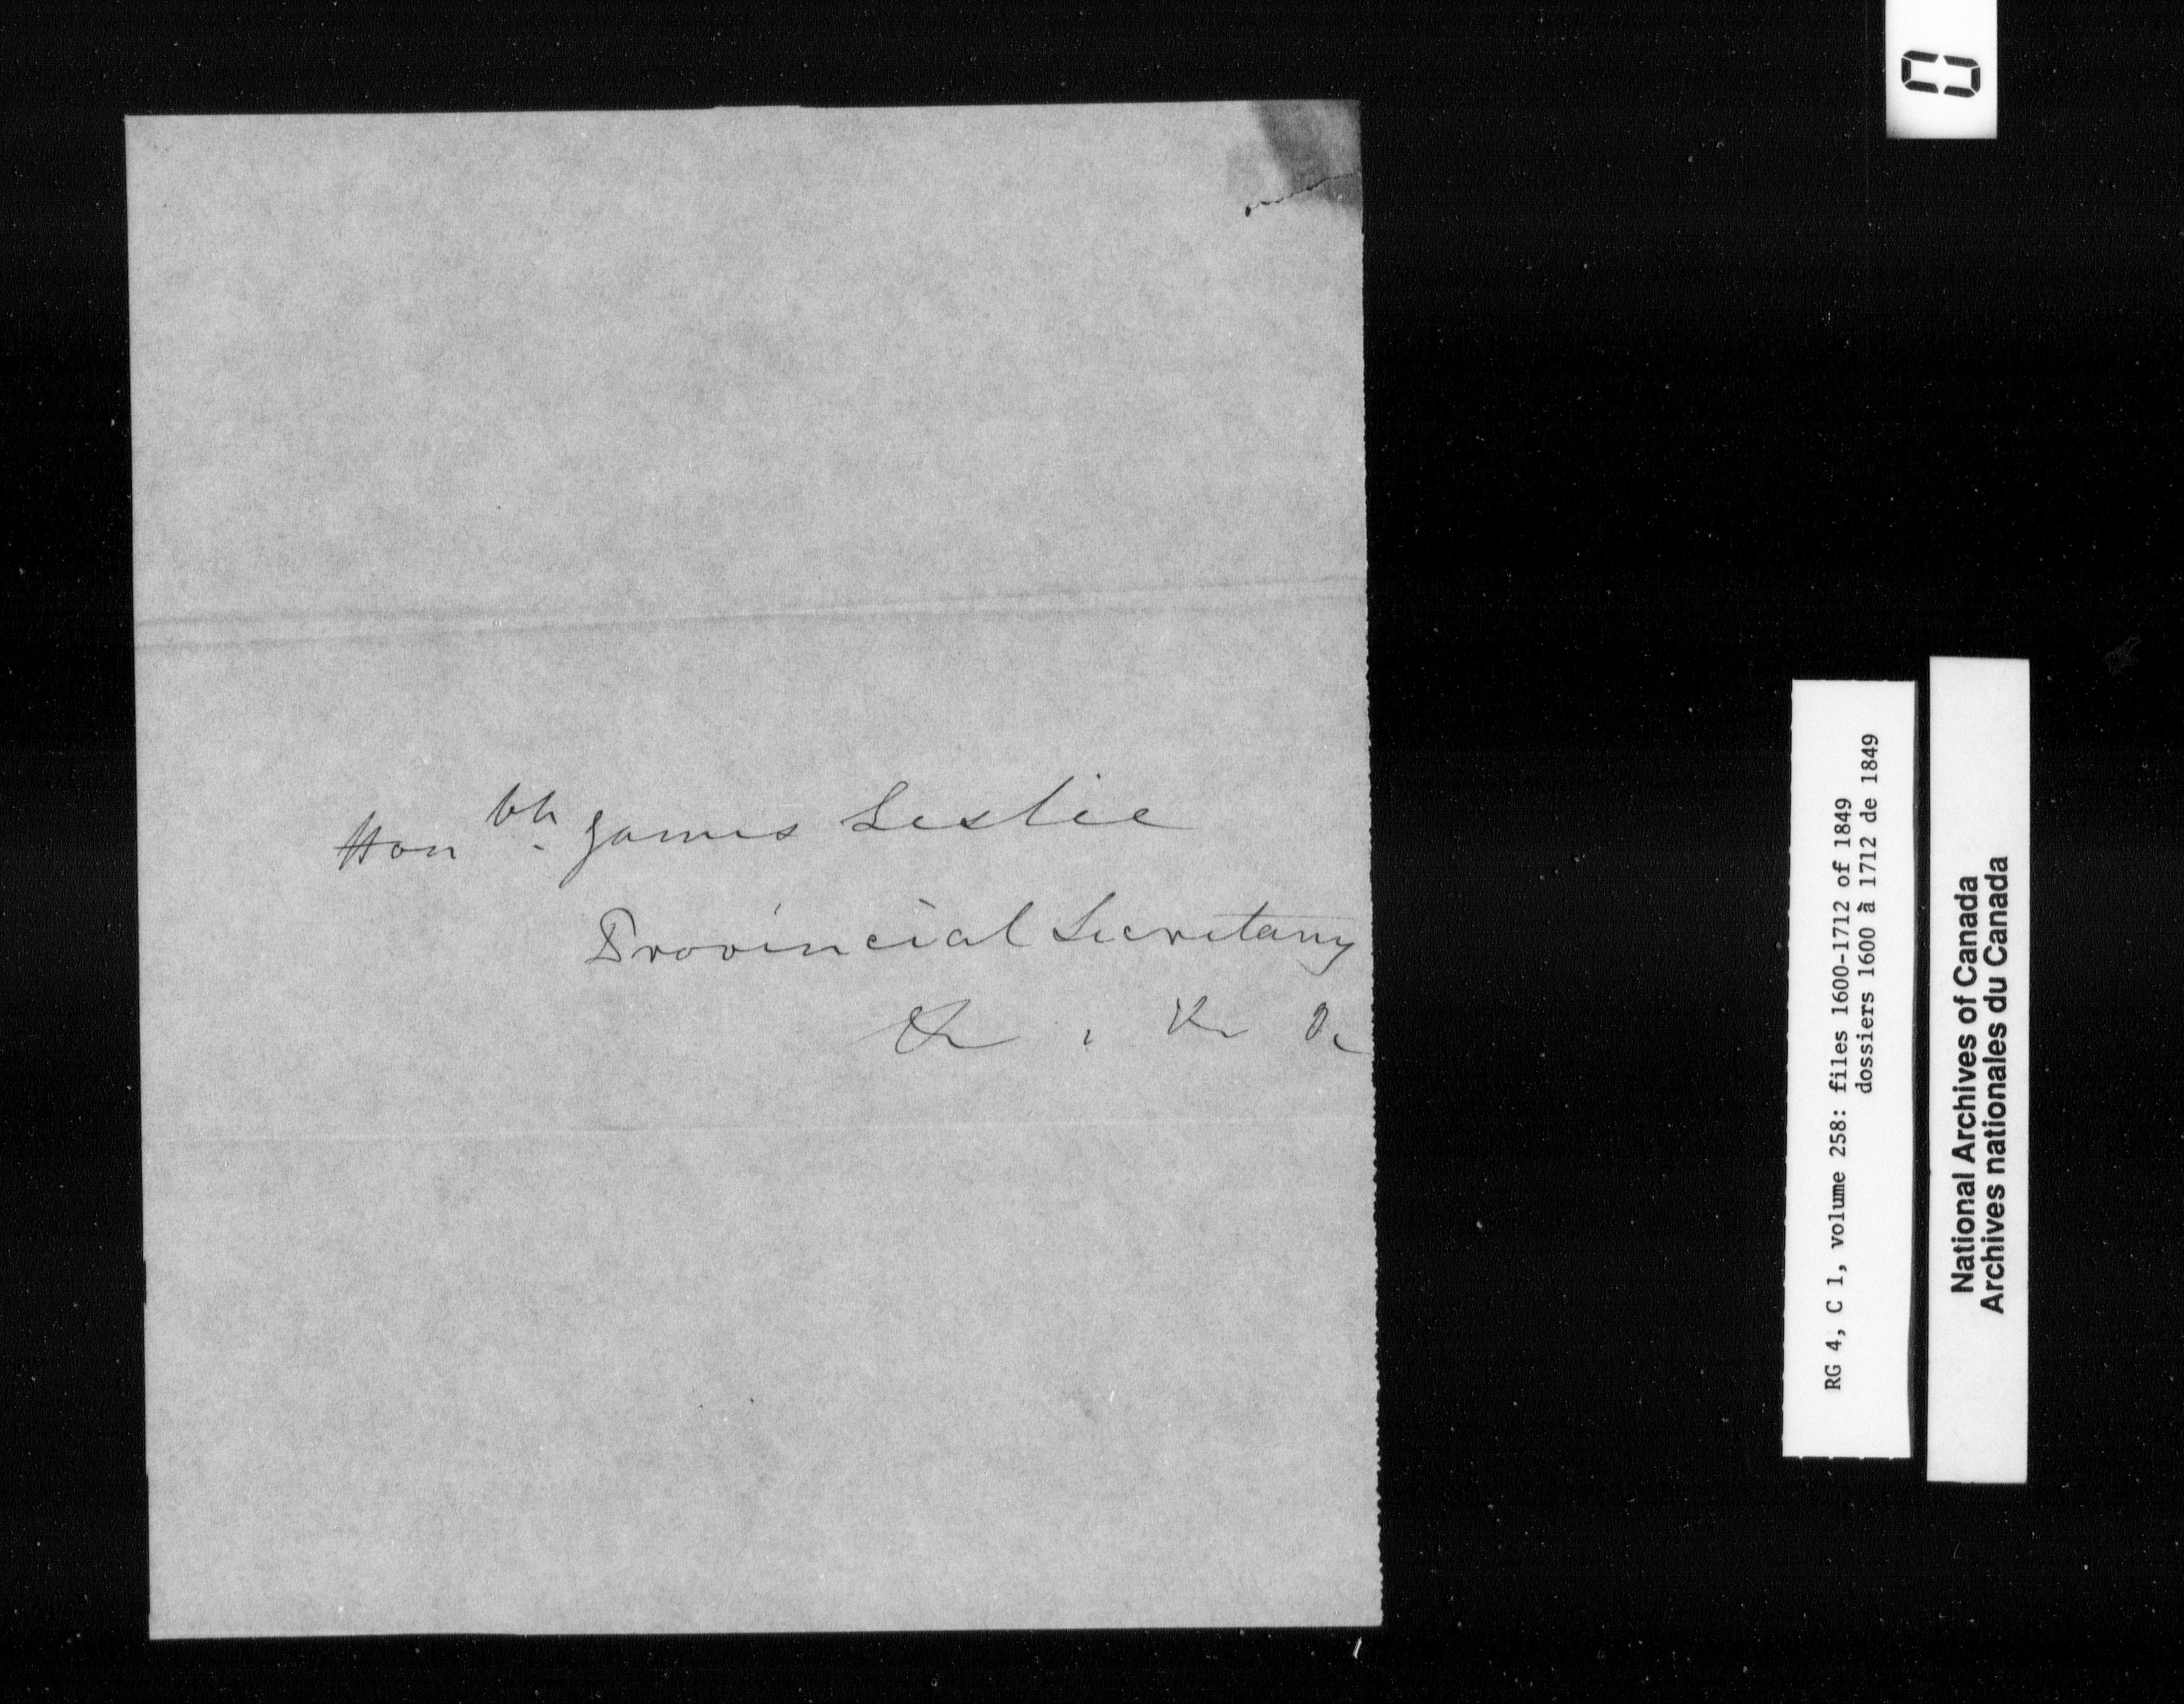 Honble. James Leslie
Provincial Secretary
&c . &c &c
RG 4, C 1, volume 258: files 1600-1712 of 1849
dossiers 1600 à 1712 de 1849
National Archives of Canada
Archives nationales du Canada
0